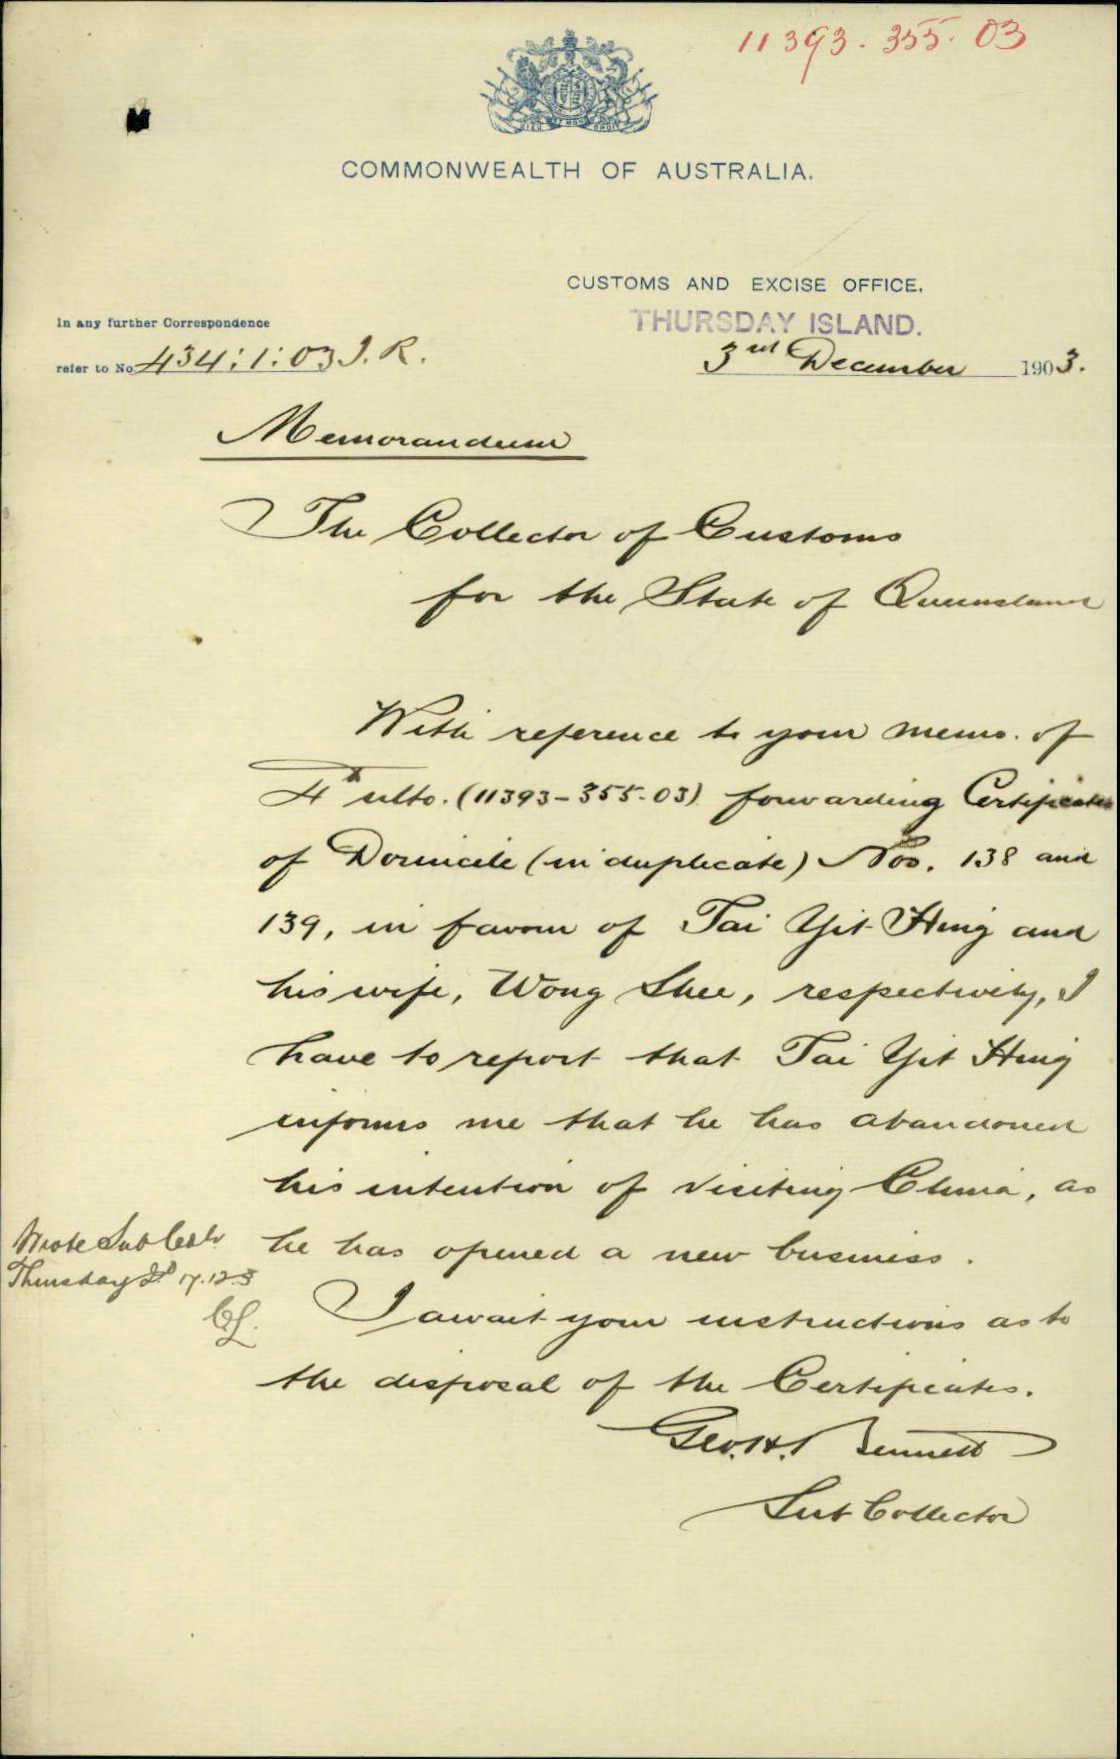 11393. 355. 03
COMMONWEALTH OF AUSTRALIA.
CUSTOMS AND EXCISE OFFICE,
THURSDAY ISLAND.
In any further Correspondence
refer to No 434:1:03 I. R.
3rd December 1903.
Memorandum
The Collector of Customs
for the State of Queensland
With reference to your memo. of
4th ulto. (11393-355-03) forwarding Certificates
of Domicile (in duplicate) Nos. 138 and
139, in favour of Tai Yit Hing and
his wife, Wong Shee, respectively, I
have to report that Tai Yit Hing
informs me that he has abandoned
his intention of visiting China, as
he has opened a new business.
Wrote Sub Collr
Thursday Id 17.12.3
I await your instructions as to
the disposal of the Certificates.
Geo. H. Bennett
Sub Collector